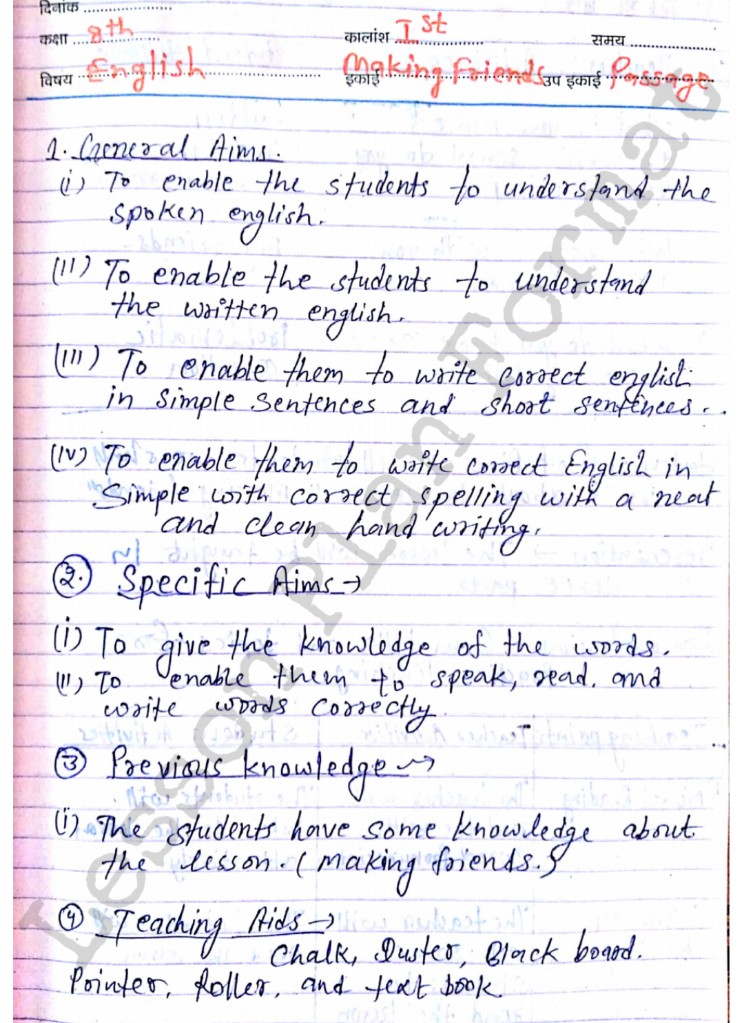 दिनांक ........................
कक्षा ....8th.... कालांश ....Ist.... समय ........................
विषय ....English.... इकाई ....Making Friends.... उप इकाई ....Passage....
1. General Aims.
(i) To enable the students to understand the
spoken english.
(II) To enable the students to understand
the written english.
(III) To enable them to write correct english
in simple sentences and short sentences..
(IV) To enable them to write correct English in
Simple with correct spelling with a neat
and clean hand writing.
2. Specific Aims→
(i) To give the knowledge of the words.
(II) To enable them to speak, read, and
write words correctly.
3 Previous knowledge→
(i) The students have some knowledge about
the lesson. (Making friends.)
4 Teaching Aids→
Chalk, Duster, Black board.
Pointer, Roller, and text book
Lesson Plan Format